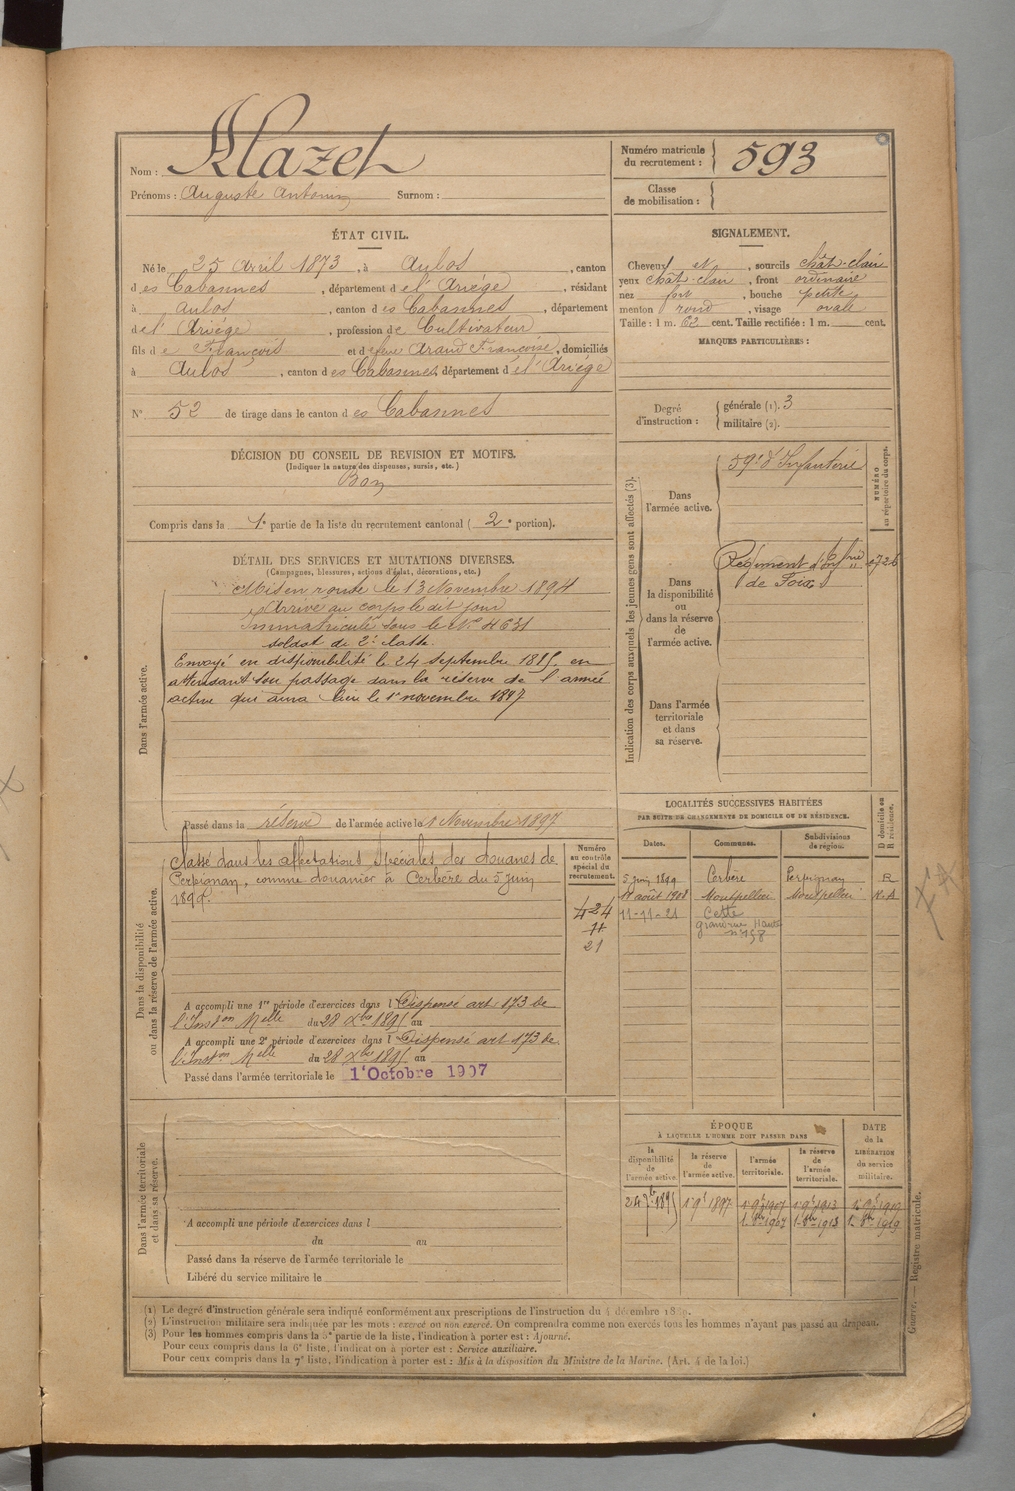 Nom : Mazet
Prénoms : Auguste Antonin Surnom :
Numéro matricule du recrutement : 593
Classe de mobilisation :
ÉTAT CIVIL.
Né le 25 Avril 1873, à Aulos, canton
des Cabannes, département de l'Ariège, résidant
à Aulos, canton des Cabannes, département
de l'Ariège, profession de Cultivateur
fils de François et de feue Araud Françoise, domiciliés
à Aulos, canton des Cabannes, département de l'Ariège
N° 52 de tirage dans le canton des Cabannes
SIGNALEMENT.
Cheveux et, sourcils chât-clair
yeux chât-clair, front ordinaire
nez fort, bouche petite
menton rond, visage ovale
Taille : 1 m. 62 cent. Taille rectifiée : 1 m. cent.
MARQUES PARTICULIÈRES :
Degré d'instruction : générale (1). 3
militaire (2).
DÉCISION DU CONSEIL DE REVISION ET MOTIFS.
(Indiquer la nature des dispenses, sursis, etc.)
Bon
Compris dans la 1e partie de la liste du recrutement cantonal ( 2e portion).
DÉTAIL DES SERVICES ET MUTATIONS DIVERSES.
(Campagnes, blessures, actions d'éclat, décorations, etc.)
Dans l'armée active.
Mis en route le 13 Novembre 1894
Arrivé au corps le dit jour
Immatriculé sous le N° 4631
soldat de 2e classe
Envoyé en disponibilité le 24 septembre 1895 en
attendant son passage dans la réserve de l'armée
active qui aura lieu le 1er novembre 1897
Passé dans la réserve de l'armée active le 1 Novembre 1897
Indication des corps auxquels les jeunes gens sont affectés (3).
NUMÉRO au répertoire du corps.
Dans l'armée active.
59e d'Infanterie
Dans la disponibilité ou dans la réserve de l'armée active.
Régiment d'Inf
de Foix
Dans l'armée territoriale et dans sa réserve.
Dans la disponibilité ou dans la réserve de l'armée active.
Classé dans les affectations spéciales des douanes de
Perpignan, comme douanier à Cerbère du 5 juin
1899.
Numéro au contrôle spécial du recrutement.
424
11
21
A accompli une 1re période d'exercices dans l Dispensé art 173 de
l'Inston Melle du 28 Xbre 1895 au
A accompli une 2e période d'exercices dans l Dispensé art 173 de
l'Inston Melle du 28 Xbre 1895 au
Passé dans l'armée territoriale le 1er Octobre 1907
LOCALITÉS SUCCESSIVES HABITÉES
PAR SUITE DE CHANGEMENTS DE DOMICILE OU DE RÉSIDENCE.
Dates. Communes. Subdivisions de région. D domicile ou R résidence.
5 juin 1899 Cerbère Perpignan R
août 1908 Montpellier Montpellier
11-11-21 Cette
grand rue Haute
n° 158
Dans l'armée territoriale et dans sa réserve.
A accompli une période d'exercices dans l
du au
Passé dans la réserve de l'armée territoriale le
Libéré du service militaire le
ÉPOQUE
À LAQUELLE L'HOMME DOIT PASSER DANS
la disponibilité de l'armée active. la réserve de l'armée active. l'armée territoriale. la réserve de l'armée territoriale. DATE de la LIBÉRATION du service militaire.
24 7bre 1895 1er 9bre 1897 1er 9bre 1907 1er 9bre 1913 1er 9bre 1919
1. 8bre 1907 1. 8bre 1913 1. 8bre 1919
(1) Le degré d'instruction générale sera indiqué conformément aux prescriptions de l'instruction du 4 décembre 1889.
(2) L'instruction militaire sera indiquée par les mots : exercé ou non exercé. On comprendra comme non exercés tous les hommes n'ayant pas passé au drapeau.
(3) Pour les hommes compris dans la 5e partie de la liste, l'indication à porter est : Ajourné.
Pour ceux compris dans la 6e liste, l'indication à porter est : Service auxiliaire.
Pour ceux compris dans la 7e liste, l'indication à porter est : Mis à la disposition du Ministre de la Marine. (Art. 4 de la loi.)
Guerre. — Registre matricule.